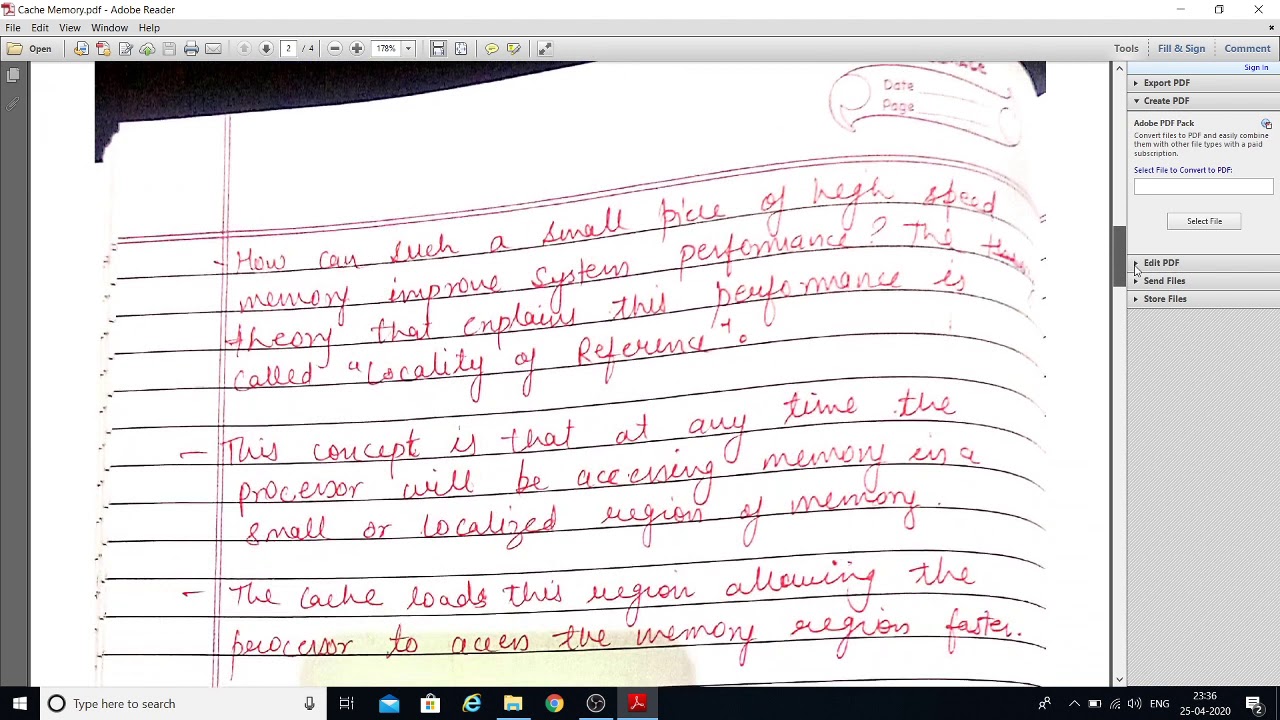 Cache Memory.pdf - Adobe Reader
File Edit View Window Help
Open 2 / 4 178% Tools Fill & Sign Comment
Sign In
Export PDF
Create PDF
Adobe PDF Pack
Convert files to PDF and easily combine
them with other file types with a paid
subscription.
Select File to Convert to PDF:
Select File
Edit PDF
Send Files
Store Files
Date
Page
- How can such a small picie of high speed
memory improve system performance? The
theory that explains this performance is
called "Locality of Reference".
- This concept is that at any time the
processor will be accessing memory in a
small or localized region of memory.
- The cache loads this region allowing the
processor to access the memory region faster.
Type here to search
ENG
23:36
25-04-2020
2